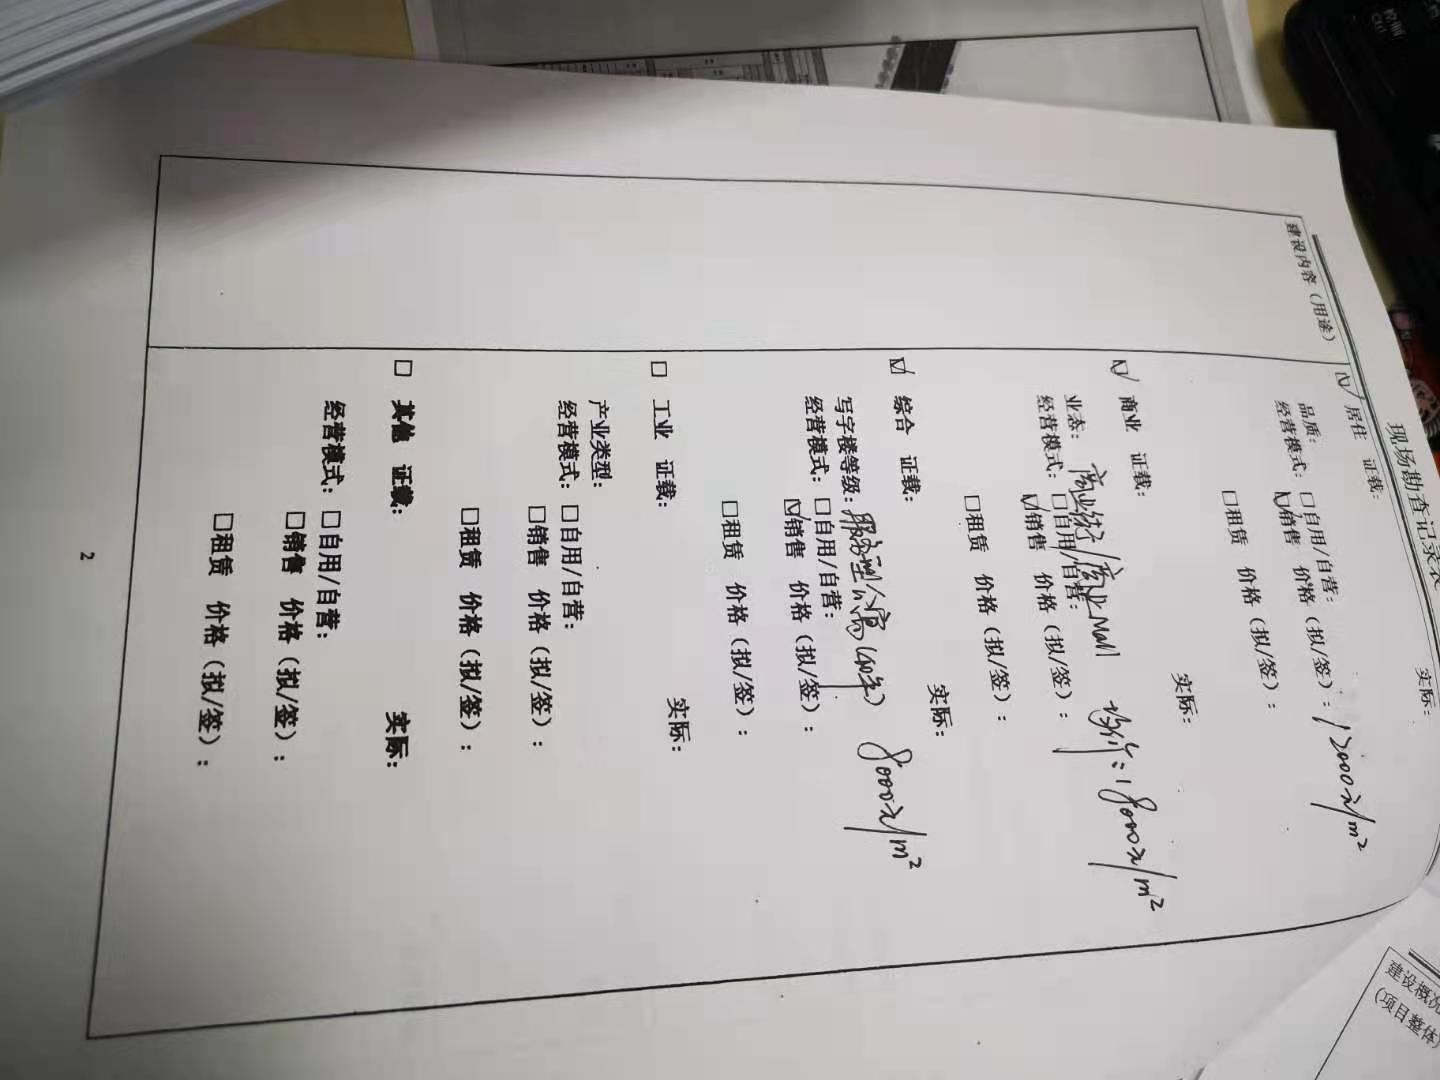 现场勘查记录表
建设内容（用途）
☑ 居住 证载： 实际：
品质：
经营模式： □自用/自营：
☑销售 价格（拟/签）：12000元/m²
□租赁 价格（拟/签）：
☑ 商业 证载： 实际：
业态： 商业街/商业Mall 均价：18000元/m²
经营模式： □自用/自营：
☑销售 价格（拟/签）：
□租赁 价格（拟/签）：
☑ 综合 证载： 实际：
写字楼等级：服务型公寓(40年) 8000元/m²
经营模式： □自用/自营：
☑销售 价格（拟/签）：
□租赁 价格（拟/签）：
□ 工业 证载： 实际：
产业类型：
经营模式： □自用/自营：
□销售 价格（拟/签）：
□租赁 价格（拟/签）：
□ 其他 证载： 实际：
经营模式： □自用/自营：
□销售 价格（拟/签）：
□租赁 价格（拟/签）：
2
建设概况
（项目整体）
控制
Ctrl